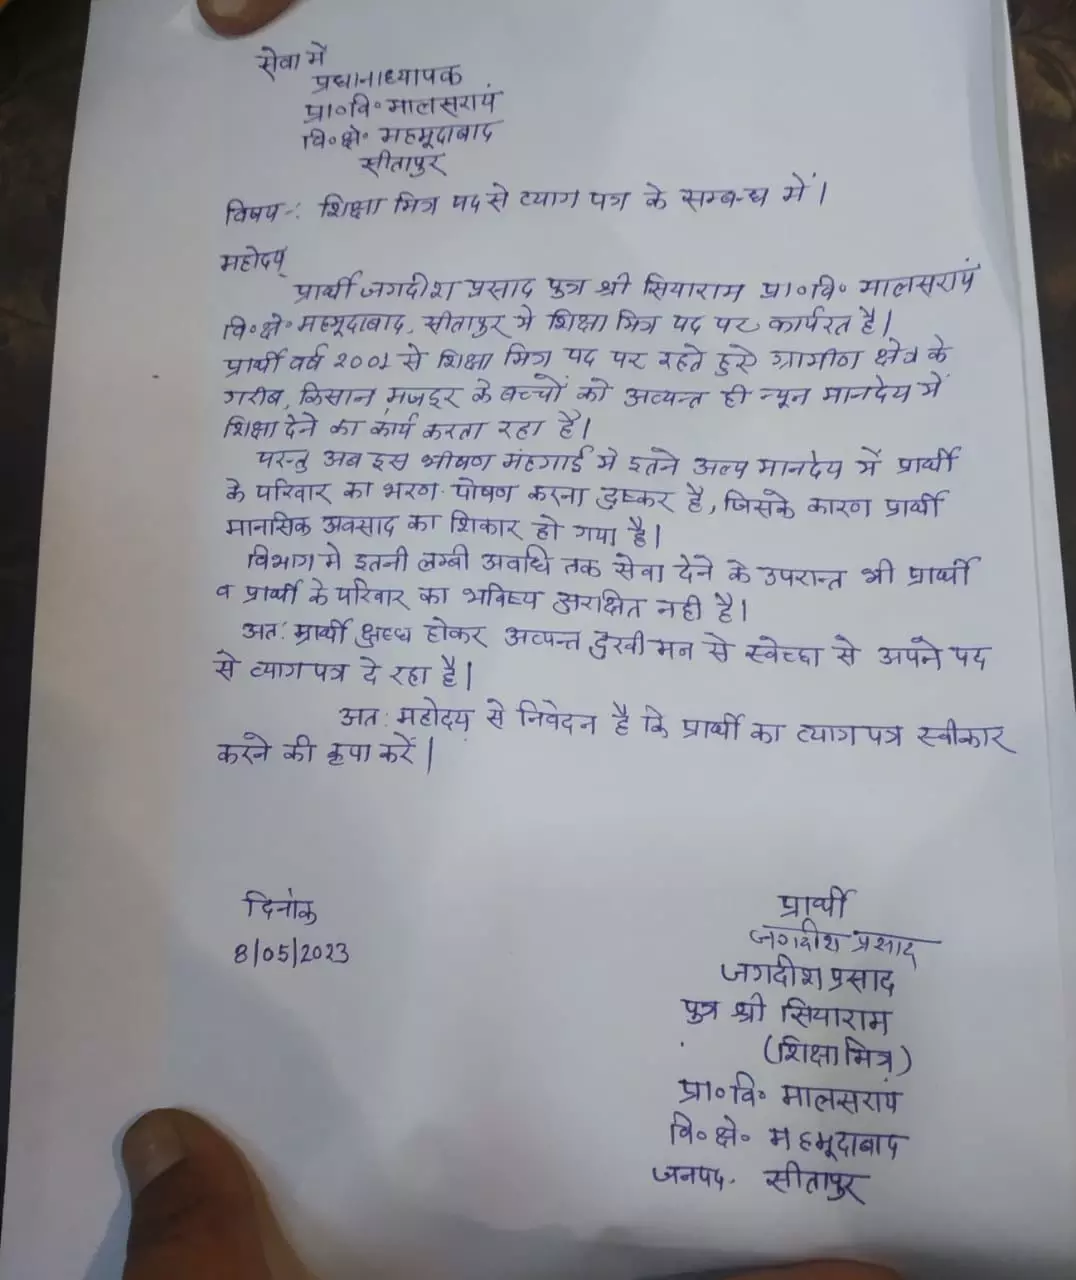 सेवा में
प्रधानाध्यापक
प्रा०वि० मालसरायं
वि०क्षे० महमूदाबाद
सीतापुर
विषय-: शिक्षा मित्र पद से त्याग पत्र के सम्बन्ध में।
महोदय
प्रार्थी जगदीश प्रसाद पुत्र श्री सियाराम प्रा०वि० मालसरायं
वि०क्षे० महमूदाबाद, सीतापुर मे शिक्षा मित्र पद पर कार्यरत है।
प्रार्थी वर्ष २००१ से शिक्षा मित्र पद पर रहते हुये ग्रामीण क्षेत्र के
गरीब, किसान, मजदूर के बच्चों को अत्यन्त ही न्यून मानदेय में
शिक्षा देने का कार्य करता रहा है।
परन्तु अब इस भीषण मंहगाई मे इतने अल्प मानदेय में प्रार्थी
के परिवार का भरण-पोषण करना दुष्कर है, जिसके कारण प्रार्थी
मानसिक अवसाद का शिकार हो गया है।
विभाग मे इतनी लम्बी अवधि तक सेवा देने के उपरान्त भी प्रार्थी
व प्रार्थी के परिवार का भविष्य सुरक्षित नही है।
अतः प्रार्थी क्षुब्ध होकर अत्यन्त दुखी मन से स्वेच्छा से अपने पद
से त्याग पत्र दे रहा है।
अतः महोदय से निवेदन है कि प्रार्थी का त्याग पत्र स्वीकार
करने की कृपा करें।
दिनांक
8/05/2023
प्रार्थी
जगदीश प्रसाद
जगदीश प्रसाद
पुत्र श्री सियाराम
(शिक्षा मित्र)
प्रा०वि० मालसरायं
वि०क्षे० महमूदाबाद
जनपद- सीतापुर